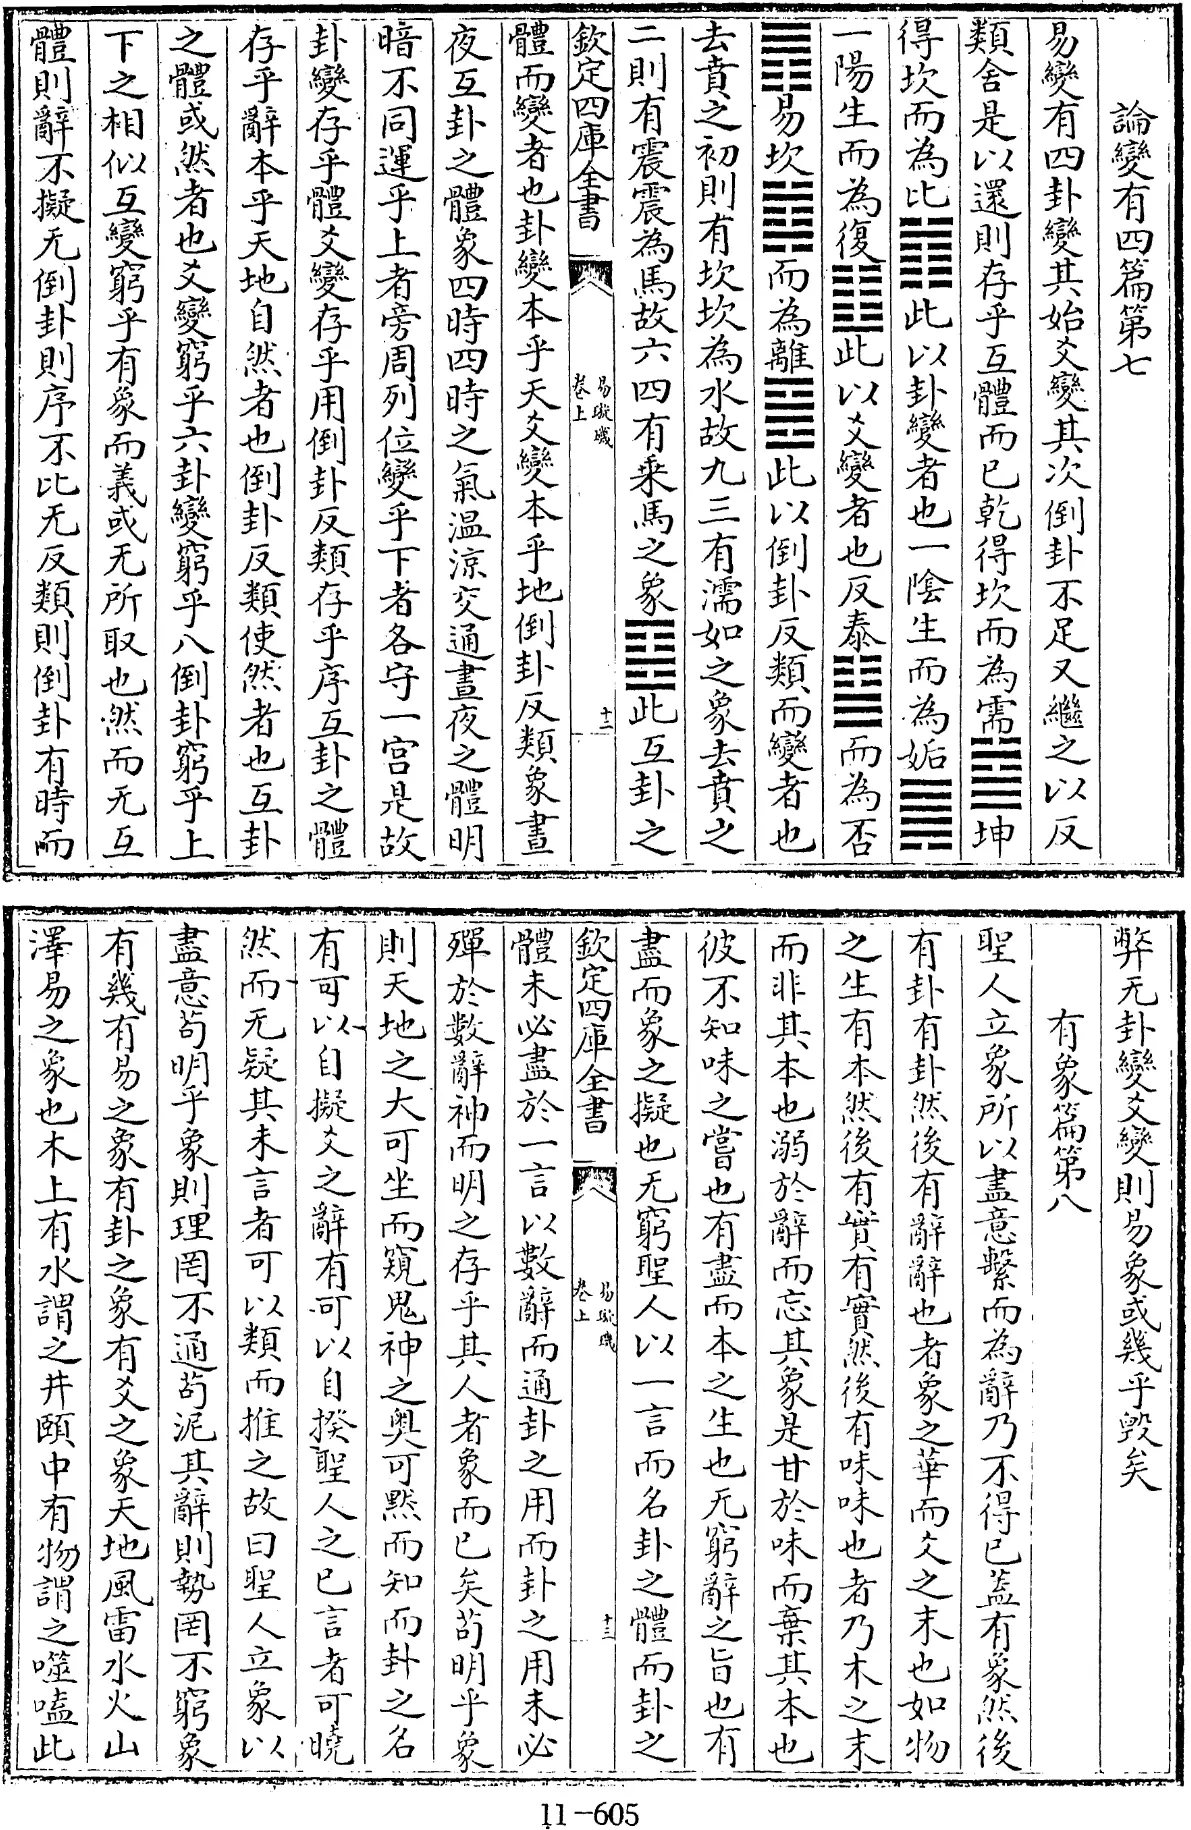 論變有四篇第七
易變有四卦變其始爻變其次倒卦不足又繼之以反
類舍是以還則存乎互體而已乾得坎而為需䷄坤
得坎而為比䷇此以卦變者也一陰生而為姤䷫
一陽生而為復䷗此以爻變者也反泰䷊而為否
䷋易坎䷜而為離䷝此以倒卦反類而變者也
去賁之初則有坎坎為水故九三有濡如之象去賁之
二則有震震為馬故六四有乘馬之象䷲此互卦之
欽定四庫全書
易璇璣
卷上
十二
體而變者也卦變本乎天爻變本乎地倒卦反類象晝
夜互卦之體象四時四時之氣温涼交通晝夜之體明
暗不同運乎上者旁周列位變乎下者各守一宮是故
卦變存乎體爻變存乎用倒卦反類存乎序互卦之體
存乎辭本乎天地自然者也倒卦反類使然者也互卦
之體或然者也爻變窮乎六卦變窮乎八倒卦窮乎上
下之相似互變窮乎有象而義或无所取也然而无互
體則辭不擬无倒卦則序不比无反類則倒卦有時而
弊无卦變爻變則易象或幾乎毁矣
有象篇第八
聖人立象所以盡意繫而為辭乃不得已蓋有象然後
有卦有卦然後有辭辭也者象之華而爻之末也如物
之生有本然後有實有實然後有味味也者乃木之末
而非其本也溺於辭而忘其象是甘於味而棄其本也
彼不知味之嘗也有盡而本之生也无窮辭之旨也有
盡而象之擬也无窮聖人以一言而名卦之體而卦之
欽定四庫全書
易璇璣
卷上
十三
體未必盡於一言以數辭而通卦之用而卦之用未必
殫於數辭神而明之存乎其人者象而已矣苟明乎象
則天地之大可坐而窺鬼神之奥可黙而知而卦之名
有可以自擬爻之辭有可以自揆聖人之已言者可曉
然而无疑其未言者可以類而推之故曰聖人立象以
盡意苟明乎象則理罔不通苟泥其辭則勢罔不窮象
有幾有易之象有卦之象有爻之象天地風雷水火山
澤易之象也木上有水謂之井頤中有物謂之噬嗑此
11-605